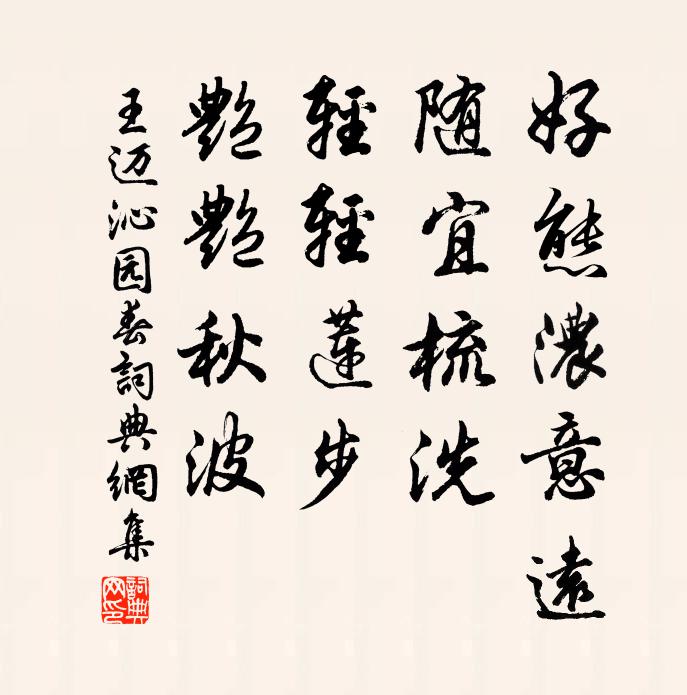 好態濃意遠
随宜梳洗
輕輕蓮步
艷艷秋波
王迈沁园春詞典網集
詞典網印